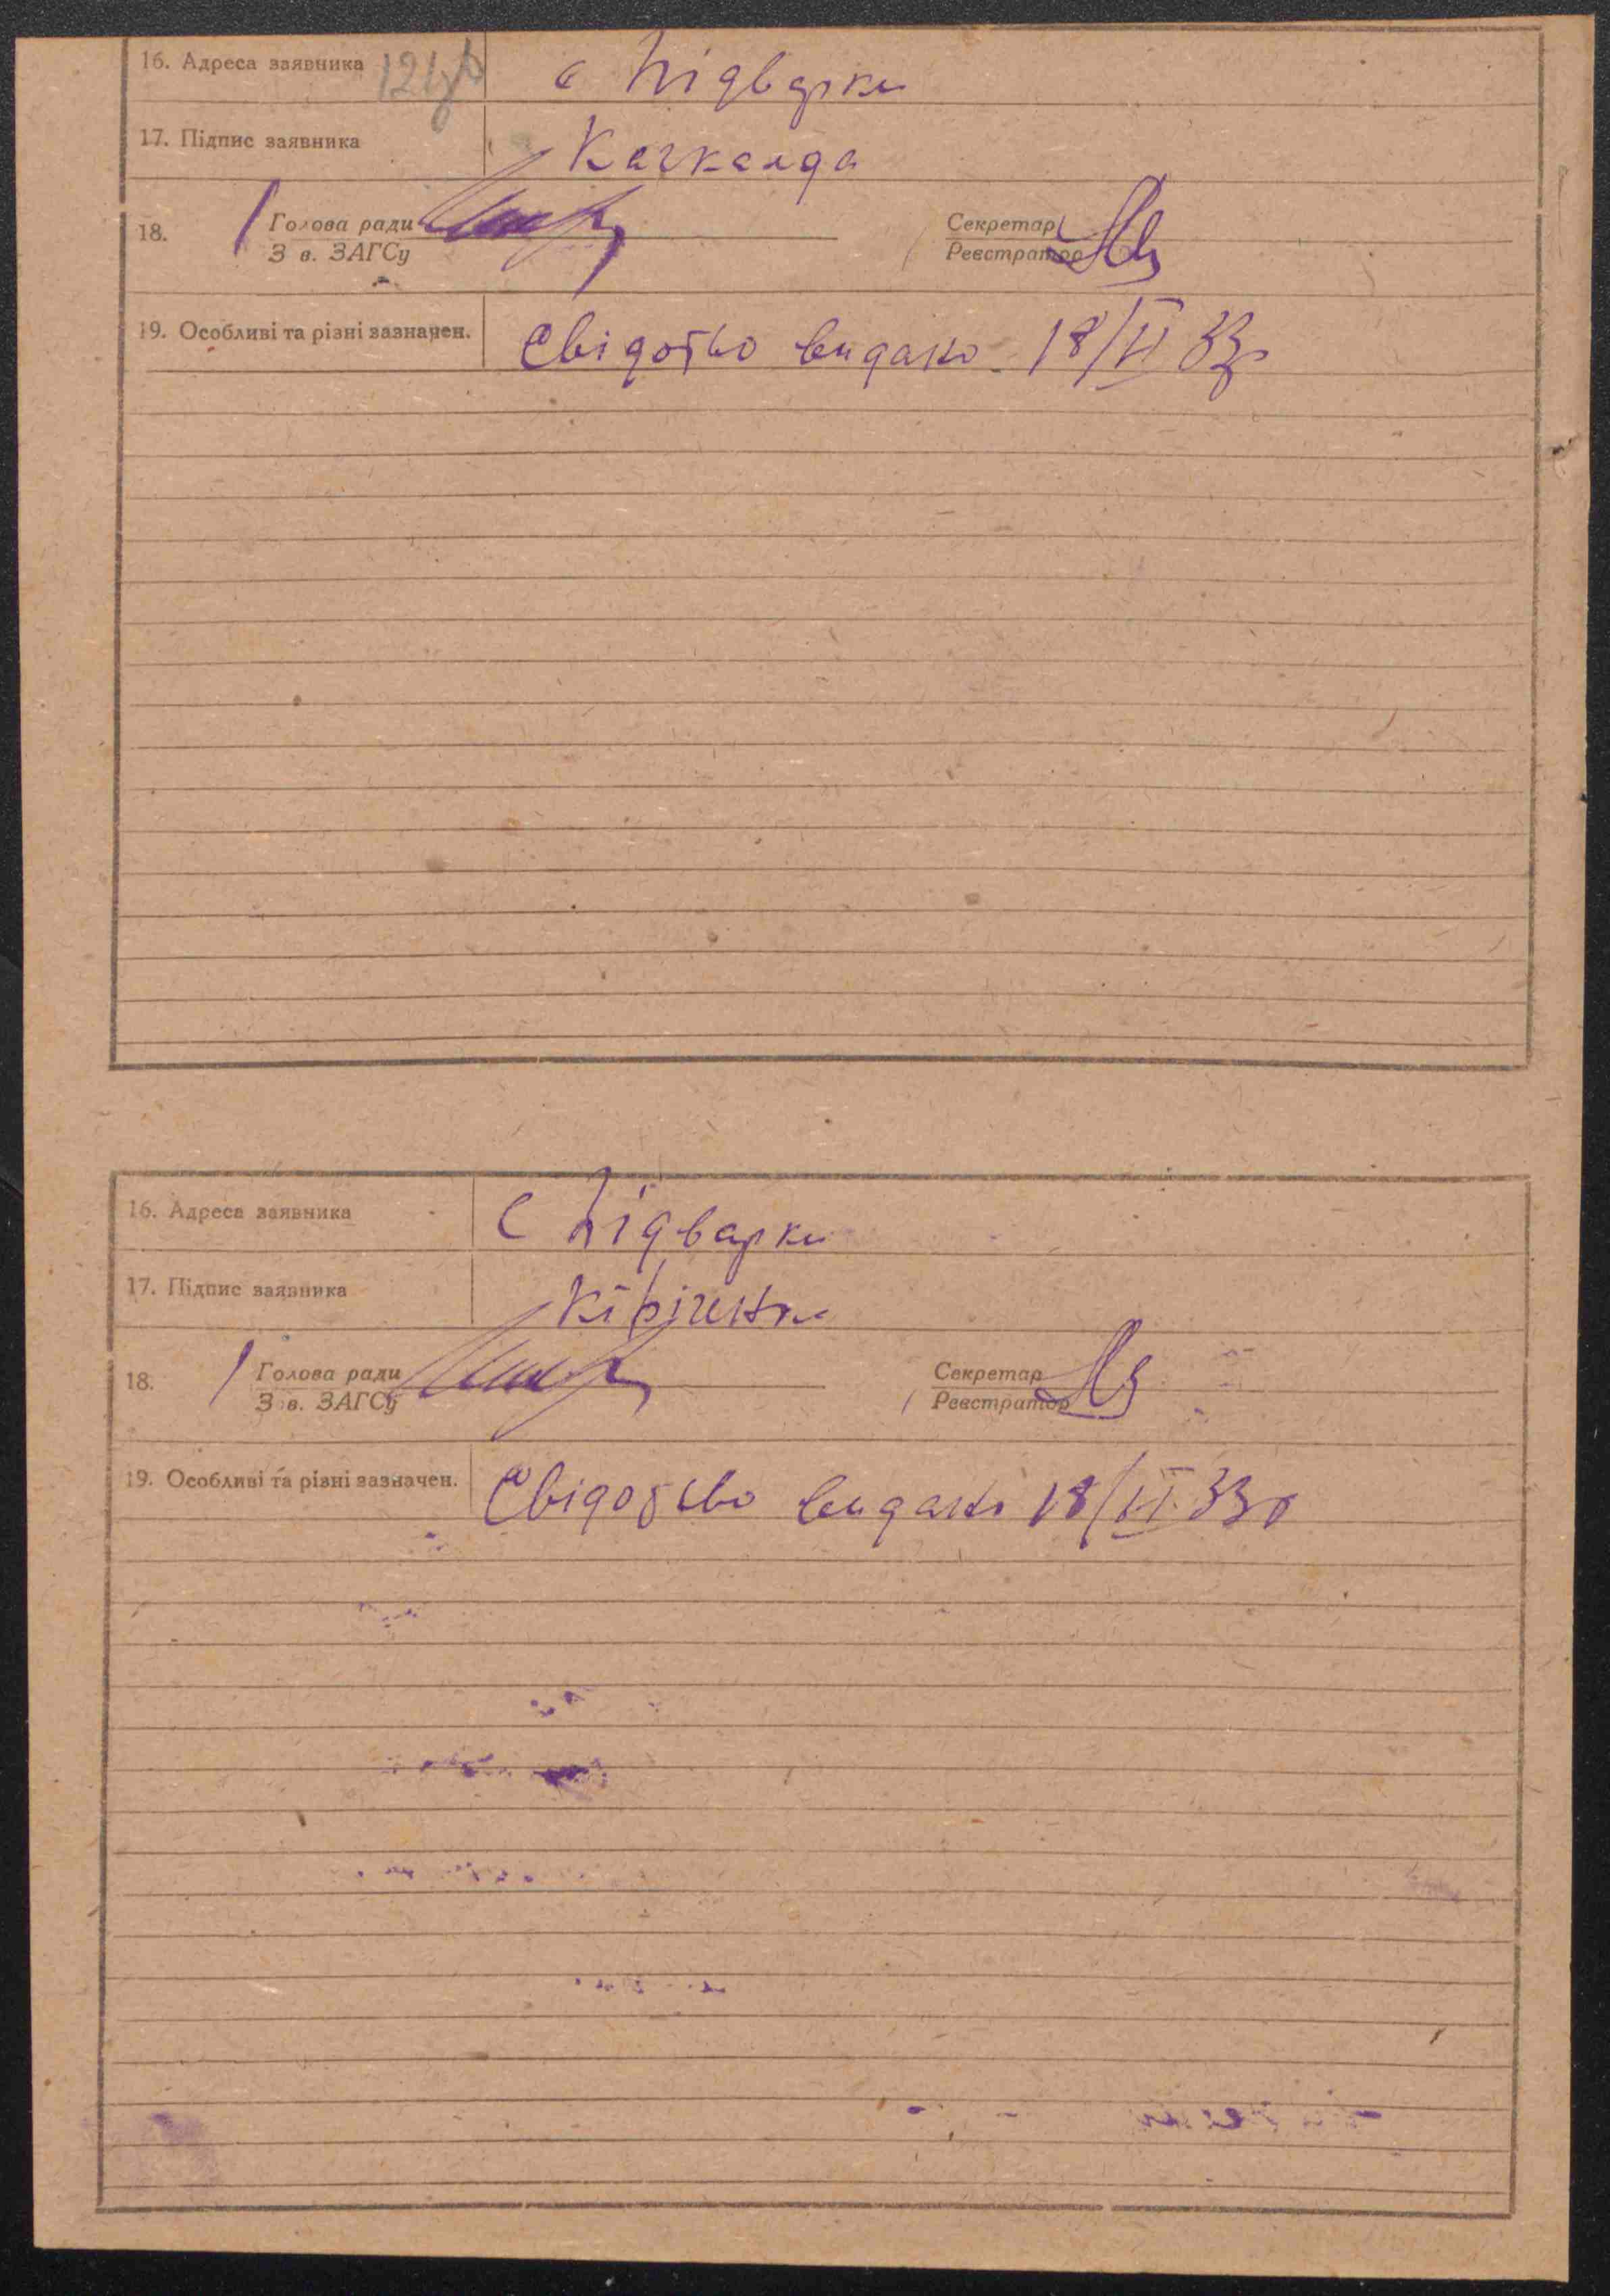 16. Адреса заявника с Підварки
17. Підпис заявника Качкалда
18. Голова ради Секретар
З в. ЗАГСу Реєстратор
19. Особливі та різні зазначен. Свідотво видано 18/VI 33р
16. Адреса заявника С Підварки
17. Підпис заявника
18. Голова ради Секретар
З в. ЗАГСу Реєстратор
19. Особливі та різні зазначен. Свідоство видано 18/VI 33р